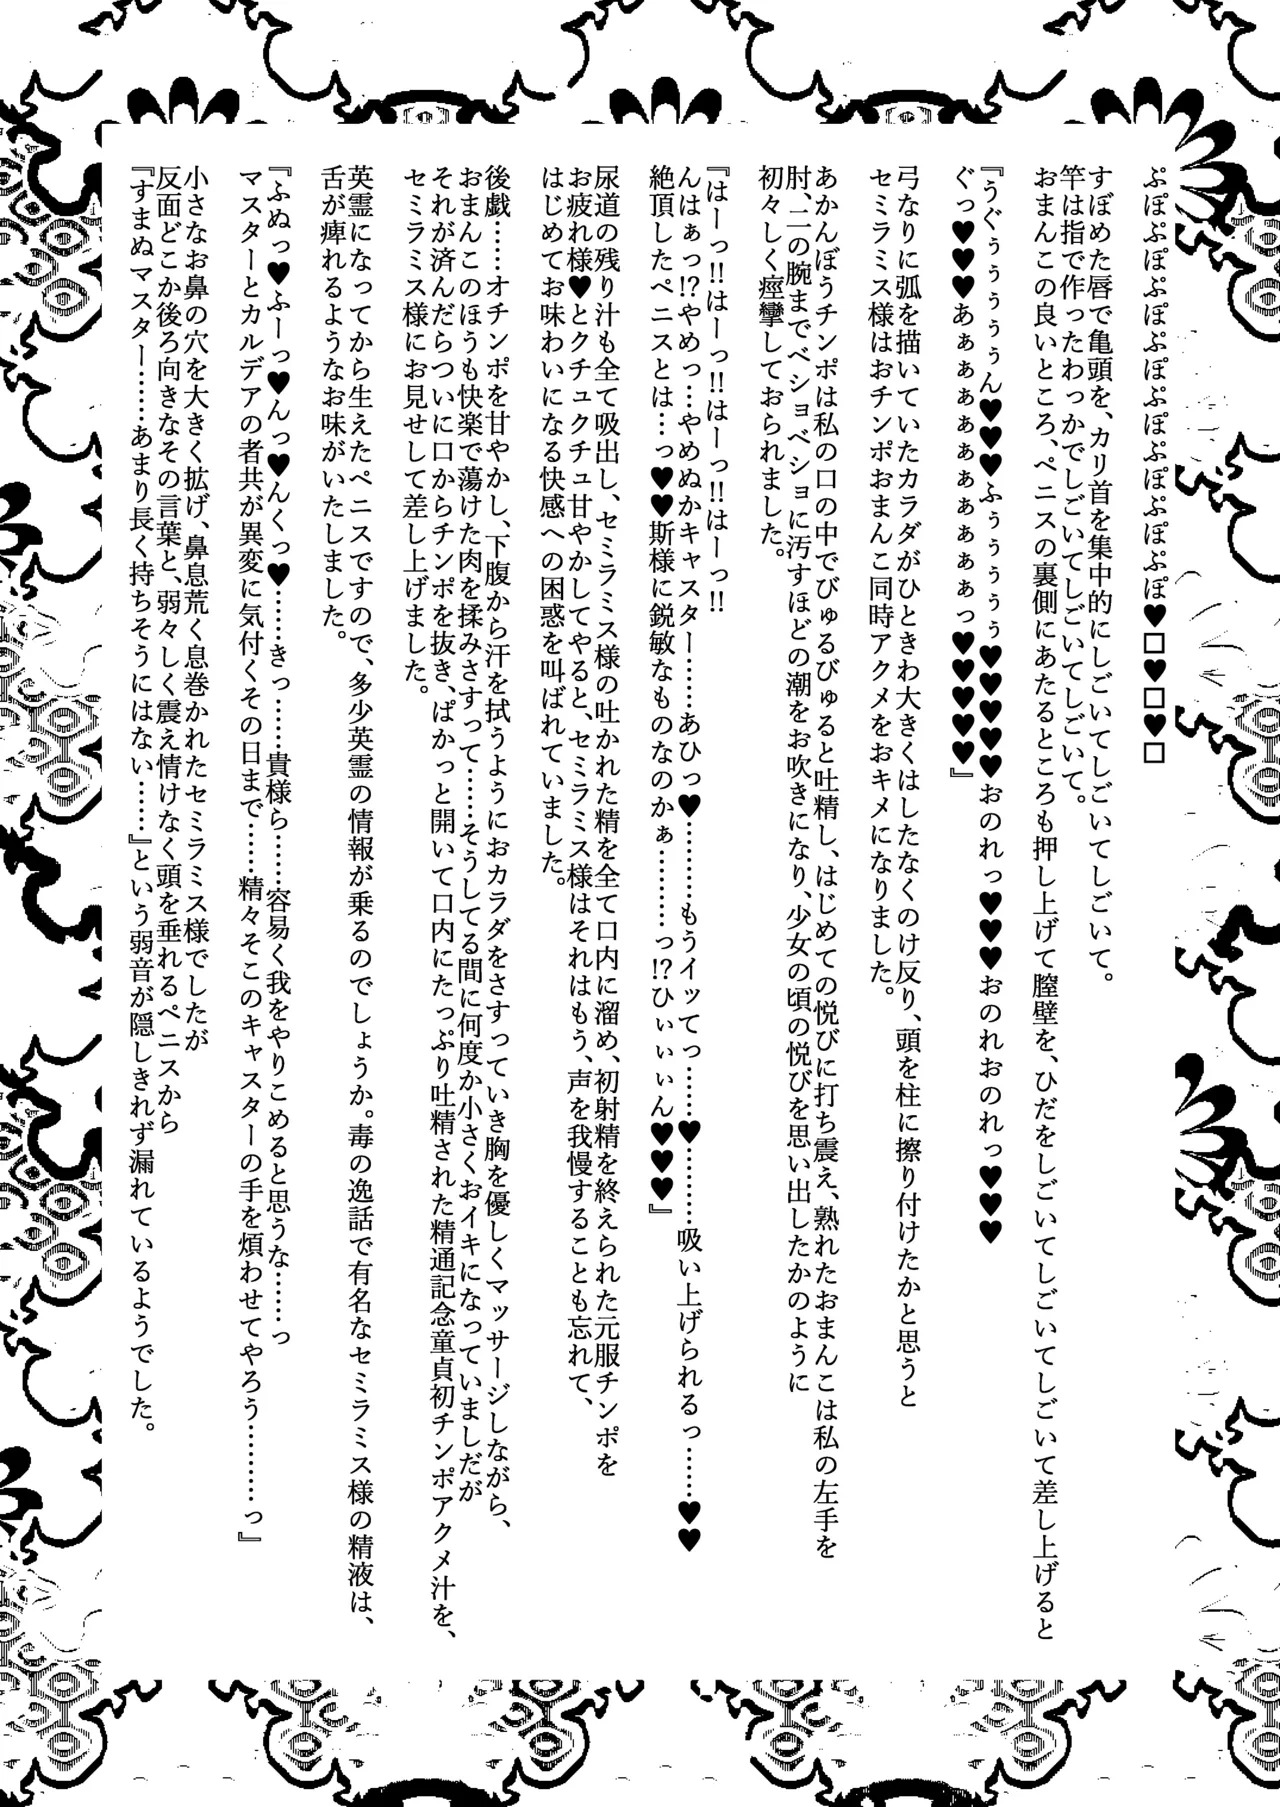 ぷぽぷぽぷぽぷぽぷぽぷぽぷぽ♥□♥□♥□
すぼめた唇で亀頭を、カリ首を集中的にしごいてしごいてしごいて。
竿は指で作ったわっかでしごいてしごいてしごいて。
おまんこの良いところ、ペニスの裏側にあたるところも押し上げて膣壁を、ひだをしごいてしごいてしごいて差し上げると
『うぐぅぅぅぅん♥♥♥ふぅぅぅぅぅ♥♥♥♥♥おのれっ♥♥♥おのれおのれっ♥♥♥
ぐっ♥♥♥あぁぁぁぁぁぁぁぁぁっ♥♥♥♥♥』
弓なりに弧を描いていたカラダがひときわ大きくはしたなくのけ反り、頭を柱に擦り付けたかと思うと
セミラミス様はおチンポおまんこ同時アクメをおキメになりました。
あかんぼうチンポは私の口の中でびゅるびゅると吐精し、はじめての悦びに打ち震え、熟れたおまんこは私の左手を
肘、二の腕までベショベショに汚すほどの潮をお吹きになり、少女の頃の悦びを思い出したかのように
初々しく痙攣しておられました。
『はーっ!!はーっ!!はーっ!!はーっ!!
んはぁっ!?やめっ…やめぬかキャスター……あひっ♥…………もうイッてっ……♥………吸い上げられるっ……♥♥
絶頂したペニスとは…っ♥♥斯様に鋭敏なものなのかぁ………っ!?ひぃぃぃん♥♥♥』
尿道の残り汁も全て吸出し、セミラミス様の吐かれた精を全て口内に溜め、初射精を終えられた元服チンポを
お疲れ様♥とクチュクチュ甘やかしてやると、セミラミス様はそれはもう、声を我慢することも忘れて、
はじめてお味わいになる快感への困惑を叫ばれていました。
後戯……オチンポを甘やかし、下腹から汗を拭うようにおカラダをさすっていき胸を優しくマッサージしながら、
おまんこのほうも快楽で蕩けた肉を揉みさすって……そうしてる間に何度か小さくおイキになっていましだが
それが済んだらついに口からチンポを抜き、ぱかっと開いて口内にたっぷり吐精された精通記念童貞初チンポアクメ汁を、
セミラミス様にお見せして差し上げました。
英霊になってから生えたペニスですので、多少英霊の情報が乗るのでしょうか。毒の逸話で有名なセミラミス様の精液は、
舌が痺れるようなお味がいたしました。
『ふぬっ♥ふーっ♥んっ♥んくっ♥……きっ……貴様ら……容易く我をやりこめると思うな……っ
マスターとカルデアの者共が異変に気付くその日まで……精々そこのキャスターの手を煩わせてやろう………っ』
小さなお鼻の穴を大きく拡げ、鼻息荒く息巻かれたセミラミス様でしたが
反面どこか後ろ向きなその言葉と、弱々しく震え情けなく頭を垂れるペニスから
『すまぬマスター……あまり長く持ちそうにはない……』という弱音が隠しきれず漏れているようでした。